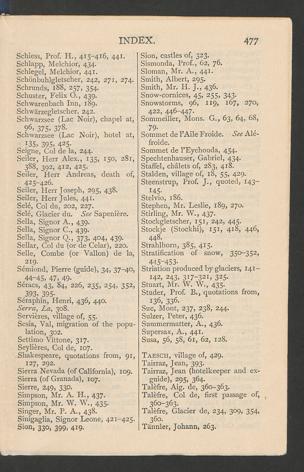 INDEX. 477
Schiess, Prof. H., 415-416, 441.
Schlapp, Melchior, 434.
Schlegel, Melchior, 441.
Schönbuhlgletscher, 242, 271, 274.
Schrunds, 188, 257, 354.
Schuster, Felix O., 439.
Schwarenbach Inn, 189.
Schwärzegletscher, 242.
Schwarzsee (Lac Noir), chapel at,
96, 375, 378.
Schwarzsee (Lac Noir), hotel at,
135, 395, 425.
Seigne, Col de la, 244.
Seiler, Herr Alex., 135, 150, 281,
388, 392, 412, 425.
Seiler, Herr Andreas, death of,
425-426.
Seiler, Herr Joseph, 295, 438.
Seiler, Herr Jules, 441.
Selé, Col de, 202, 227.
Selé, Glacier du. See Sapenière.
Sella, Signor A., 439.
Sella, Signor C., 439.
Sella, Signor Q., 373, 404, 439.
Sellar, Col du (or de Celar), 220.
Selle, Combe (or Vallon) de la,
219.
Sémiond, Pierre (guide), 34, 37-40,
44-45, 47, 49.
Séracs, 43, 84, 226, 235, 254, 352,
393, 395.
Séraphin, Henri, 436, 440.
Serra, La, 308.
Servières, village of, 55.
Sesia, Val, migration of the popu-
lation, 302.
Settimo Vittone, 317.
Seylières, Col de, 107.
Shakespeare, quotations from, 91,
127, 292.
Sierra Nevada (of California), 109.
Sierra (of Granada), 107.
Sierre, 249, 330.
Simpson, Mr. A. H., 437.
Simpson, Mr. W. W., 435.
Singer, Mr. P. A., 438.
Sinigaglia, Signor Leone, 421-425.
Sion, 330, 399, 419.
Sion, castles of, 323.
Sismonda, Prof., 62, 76.
Sloman, Mr. A., 441.
Smith, Albert, 295.
Smith, Mr. H. J., 436.
Snow-cornices, 45, 255, 343.
Snowstorms, 96, 119, 167, 270,
422, 446-447.
Sommeiller, Mons. G., 63, 64, 68,
79.
Sommet de l'Aile Froide. See Alé-
froide.
Sommet de l'Eychouda, 454.
Spechtenhauser, Gabriel, 434.
Staffel, châlets of, 283, 418.
Stalden, village of, 18, 55, 429.
Steenstrup, Prof. J., quoted, 143-
145.
Stelvio, 186.
Stephen, Mr. Leslie, 189, 270.
Stirling, Mr. W., 437.
Stockgletscher, 151, 242, 445.
Stockje (Stockhi), 151, 418, 446,
448.
Strahlhorn, 385, 415.
Stratification of snow, 350-352,
415-453.
Striation produced by glaciers, 141-
142, 243, 317-321, 325.
Stuart, Mr. W. W., 435.
Studer, Prof. B., quotations from,
136, 336.
Suc, Mont, 237, 238, 244.
Sulzer, Peter, 436.
Summermatter, A., 436.
Supersax, A., 441.
Susa, 56, 58, 61, 62, 128.
TAESCH, village of, 429.
Tairraz, Jean, 393.
Tairraz, Jean (hotelkeeper and ex-
guide), 295, 364.
Talèfre, Aig. de, 360-363.
Talèfre, Col de, first passage of,
360-363.
Talèfre, Glacier de, 234, 309, 354,
360.
Tännler, Johann, 263.